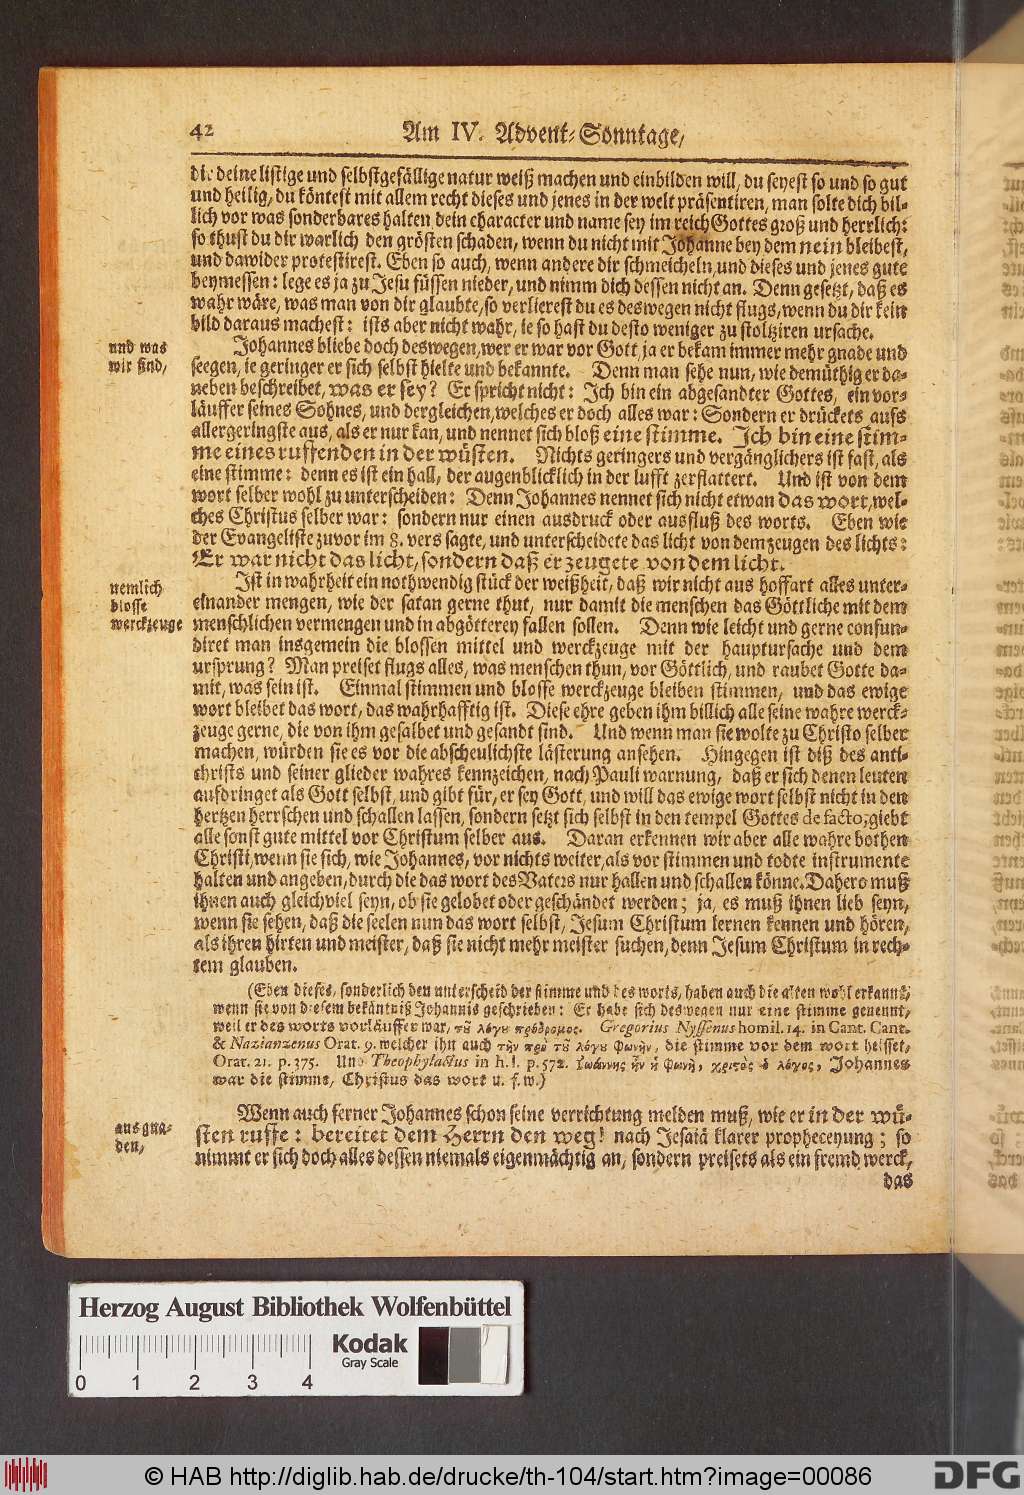 42 Am IV. Advent-Sonntage,
die deine listige und selbstgefällige natur weiß machen und einbilden will, du seyest so und so gut
und heilig, du köntest mit allem recht dieses und jenes in der welt präsentiren, man solte dich bil-
lich vor was sonderbares halten, dein character und name sey im reich Gottes groß und herrlich:
so thust du dir warlich den grösten schaden, wenn du nicht mit Johanne bey dem nein bleibest,
und dawider protestirest. Eben so auch, wenn andere dir schmeicheln, und dieses und jenes gute
beymessen: lege es ja zu Jesu füssen nieder, und nimm dich dessen nicht an. Denn gesetzt, daß es
wahr wäre, was man von dir glaubte, so verlierest du es deswegen nicht flugs, wenn du dir kein
bild daraus machest: ists aber nicht wahr, ie so hast du desto weniger zu stoltziren ursache.
und was
wir sind,
Johannes bliebe doch deswegen, wer er war vor Gott, ja er bekam immer mehr gnade und
seegen, ie geringer er sich selbst hielte und bekannte. Denn man sehe nun, wie demüthig er da-
neben beschreibet, was er sey? Er spricht nicht: Ich bin ein abgesandter Gottes, ein vor-
läuffer seines Sohnes, und dergleichen, welches er doch alles war: Sondern er drückets aufs
allergeringste aus, als er nur kan, und nennet sich bloß eine stimme. Ich bin eine stim-
me eines ruffenden in der wüsten. Nichts geringers und vergänglichers ist fast, als
eine stimme: denn es ist ein hall, der augenblicklich in der lufft zerflattert. Und ist von dem
wort selber wohl zu unterscheiden: Denn Johannes nennet sich nicht etwan das wort, wel-
ches Christus selber war: sondern nur einen ausdruck oder ausfluß des worts. Eben wie
der Evangeliste zuvor im 8. vers sagte, und unterscheidete das licht von dem zeugen des lichts:
Er war nicht das licht, sondern daß er zeugete von dem licht.
nemlich
blosse
werckzeuge
Ist in wahrheit ein nothwendig stück der weißheit, daß wir nicht aus hoffart alles unter-
einander mengen, wie der satan gerne thut, nur damit die menschen das Göttliche mit dem
menschlichen vermengen und in abgötterey fallen sollen. Denn wie leicht und gerne confun-
diret man insgemein die blossen mittel und werckzeuge mit der hauptursache und dem
ursprung? Man preiset flugs alles, was menschen thun, vor Göttlich, und raubet Gotte da-
mit, was sein ist. Einmal stimmen und blosse werckzeuge bleiben stimmen, und das ewige
wort bleibet das wort, das wahrhafftig ist. Diese ehre geben ihm billich alle seine wahre werck-
zeuge gerne, die von ihm gesalbet und gesandt sind. Und wenn man sie wolte zu Christo selber
machen, würden sie es vor die abscheulichste lästerung ansehen. Hingegen ist diß des anti-
christs und seiner glieder wahres kennzeichen, nach Pauli warnung, daß er sich denen leuten
aufdringet als Gott selbst, und gibt für, er sey Gott, und will das ewige wort selbst nicht in den
hertzen herrschen und schallen lassen, sondern setzt sich selbst in den tempel Gottes de facto, giebt
alle sonst gute mittel vor Christum selber aus. Daran erkennen wir aber alle wahre bothen
Christi, wenn sie sich, wie Johannes, vor nichts weiter, als vor stimmen und todte instrumente
halten und angeben, durch die das wort des Vaters nur hallen und schallen könne. Dahero muß
ihnen auch gleichviel seyn, ob sie gelobet oder geschändet werden; ja, es muß ihnen lieb seyn,
wenn sie sehen, daß die seelen nun das wort selbst, Jesum Christum lernen kennen und hören,
als ihren hirten und meister, daß sie nicht mehr meister suchen, denn Jesum Christum in rech-
tem glauben.
(Eben dieses, sonderlich den unterscheid der stimme und des worts, haben auch die alten wohl erkannt,
wenn sie von diesem bekäntniß Johannis geschrieben: Er habe sich deswegen nur eine stimme genennt,
weil er des worts vorläuffer war, τοῦ λόγου πρόδρομος. Gregorius Nyssenus homil. 14. in Cant. Cant.
& Nazianzenus Orat. 9. welcher ihn auch τὴν πρὸ τοῦ λόγου φωνὴν, die stimme vor dem wort heisset,
Orat. 21. p. 375. Und Theophylactus in h. l. p. 572. Ἰωάννης ἦν ἡ φωνὴ, χριστὸς ὁ λόγος, Johannes
war die stimme, Christus das wort u. s. w.)
aus gna-
den,
Wenn auch ferner Johannes schon seine verrichtung melden muß, wie er in der wü-
sten ruffe: bereitet dem Herrn den weg! nach Jesaiä klarer propheceyung; so
nimmt er sich doch alles dessen niemals eigenmächtig an, sondern preisets als ein fremd werck,
das
Herzog August Bibliothek Wolfenbüttel
Kodak
Gray Scale
0 1 2 3 4
© HAB http://diglib.hab.de/drucke/th-104/start.htm?image=00086
DFG